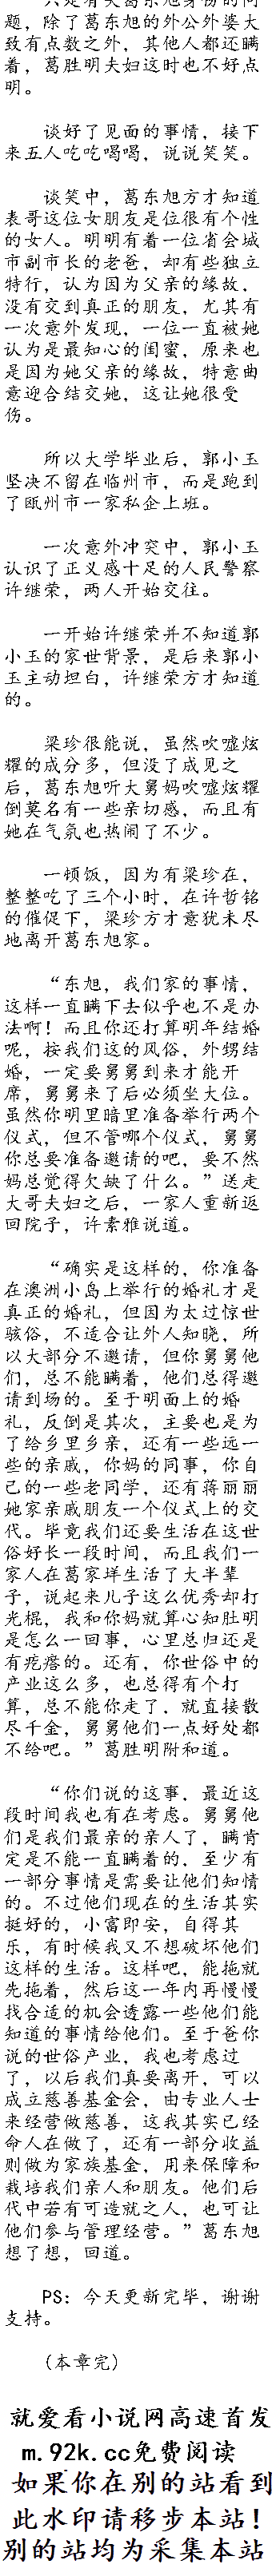 只是有关葛东旭身份的问
题，除了葛东旭的外公外婆大
致有点数之外，其他人都还瞒
着，葛胜明夫妇这时也不好点
明。
谈好了见面的事情，接下
来五人吃吃喝喝，说说笑笑。
谈笑中，葛东旭方才知道
表哥这位女朋友是位很有个性
的女人。明明有着一位省会城
市副市长的老爸，却有些独立
特行，认为因为父亲的缘故，
没有交到真正的朋友，尤其有
一次意外发现，一位一直被她
认为是最知心的闺蜜，原来也
是因为她父亲的缘故，特意曲
意迎合结交她，这让她很受
伤。
所以大学毕业后，郭小玉
坚决不留在临州市，而是跑到
了瓯州市一家私企上班。
一次意外冲突中，郭小玉
认识了正义感十足的人民警察
许继荣，两人开始交往。
一开始许继荣并不知道郭
小玉的家世背景，是后来郭小
玉主动坦白，许继荣方才知道
的。
梁珍很能说，虽然吹嘘炫
耀的成分多，但没了成见之
后，葛东旭听大舅妈吹嘘炫耀
倒莫名有一些亲切感，而且有
她在气氛也热闹了不少。
一顿饭，因为有梁珍在，
整整吃了三个小时，在许哲铭
的催促下，梁珍方才意犹未尽
地离开葛东旭家。
“东旭，我们家的事情，
这样一直瞒下去似乎也不是办
法啊！而且你还打算明年结婚
呢，按我们这的风俗，外甥结
婚，一定要舅舅到来才能开
席，舅舅来了后必须坐大位。
虽然你明里暗里准备举行两个
仪式，但不管哪个仪式，舅舅
你总要准备邀请的吧，要不然
妈总觉得欠缺了什么。”送走
大哥夫妇之后，一家人重新返
回院子，许素雅说道。
“确实是这样的，你准备
在澳洲小岛上举行的婚礼才是
真正的婚礼，但因为太过惊世
骇俗，不适合让外人知晓，所
以大部分不邀请，但你舅舅他
们，总不能瞒着，他们总得邀
请到场的。至于明面上的婚
礼，反倒是其次，主要也是为
了给乡里乡亲，还有一些远一
些的亲戚，你妈的同事，你自
己的一些老同学，还有蒋丽丽
她家亲戚朋友一个仪式上的交
代。毕竟我们还要生活在这世
俗好长一段时间，而且我们一
家人在葛家垟生活了大半辈
子，说起来儿子这么优秀却打
光棍，我和你妈就算心知肚明
是怎么一回事，心里总归还是
有疙瘩的。还有，你世俗中的
产业这么多，也总得有个打
算，总不能你走了，就直接散
尽千金，舅舅他们一点好处都
不给吧。”葛胜明附和道。
“你们说的这事，最近这
段时间我也有在考虑。舅舅他
们是我们最亲的亲人了，瞒肯
定是不能一直瞒着的，至少有
一部分事情是需要让他们知情
的。不过他们现在的生活其实
挺好的，小富即安，自得其
乐，有时候我又不想破坏他们
这样的生活。这样吧，能拖就
先拖着，然后这一年内再慢慢
找合适的机会透露一些他们能
知道的事情给他们。至于爸你
说的世俗产业，我也考虑过
了，以后我们真要离开，可以
成立慈善基金会，由专业人士
来经营做慈善，这我其实已经
命人在做了，还有一部分收益
则做为家族基金，用来保障和
栽培我们亲人和朋友。他们后
代中若有可造就之人，也可让
他们参与管理经营。”葛东旭
想了想，回道。
PS：今天更新完毕，谢谢
支持。
（本章完）
就爱看小说网高速首发
m.92k.cc免费阅读
如果你在别的站看到
此水印请移步本站！
别的站均为采集本站